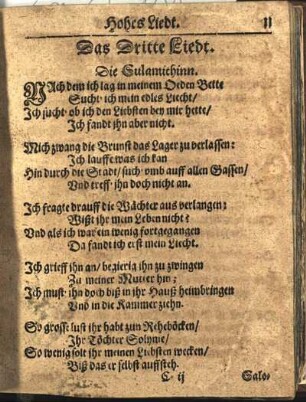 Hohes Liedt. 11
Das Dritte Liedt.
Die Sulamithinn.
NAch dem ich lag in meinem Oeden Bette
Sucht ich mein edles Liecht/
Ich sucht ob ich den Liebsten bey mir hette/
Ich fandt jhn aber nicht.
Mich zwang die Brunst das Lager zu verlassen:
Ich lauffe was ich kan
Hin durch die Stadt/such vmb auff allen Gassen/
Vnd treff jhn doch nicht an.
Ich fragte drauff die Wächter aus verlangen;
Wißt jhr mein Leben nicht?
Vnd als ich war ein wenig fortgegangen
Da fandt ich erst mein Liecht.
Ich grieff jhn an/begierig ihn zu zwingen
Zu meiner Mutter hin;
Ich must jhn doch biß in jhr Hauß heimbringen
Vnd in die Kammer ziehn.
So grosse lust jhr habt zun Reheböcken/
Ihr Töchter Solyme/
So wenig solt jhr meinen Liebsten wecken/
Biß das er selbst auffsteh.
C ij Salo-